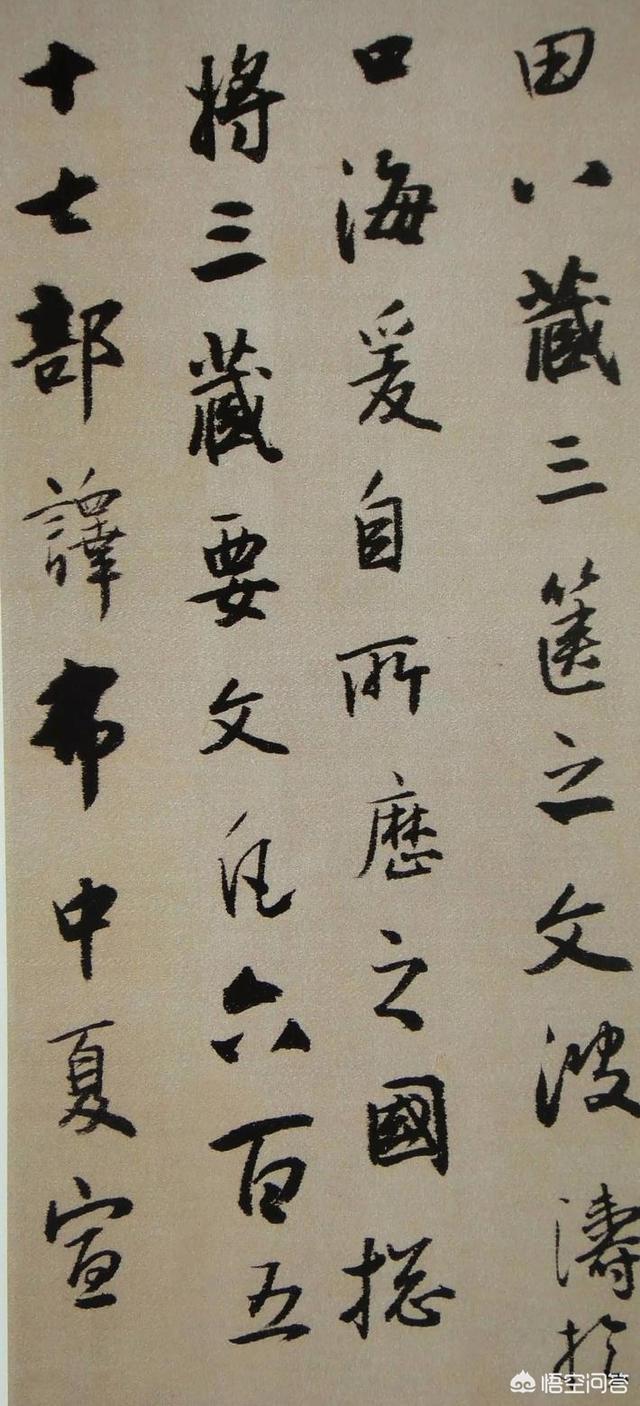 田八藏三篋之文波濤於
口海爰自所歷之國揔
將三藏要文凡六百五
十七部譯布中夏宣
悟空问答